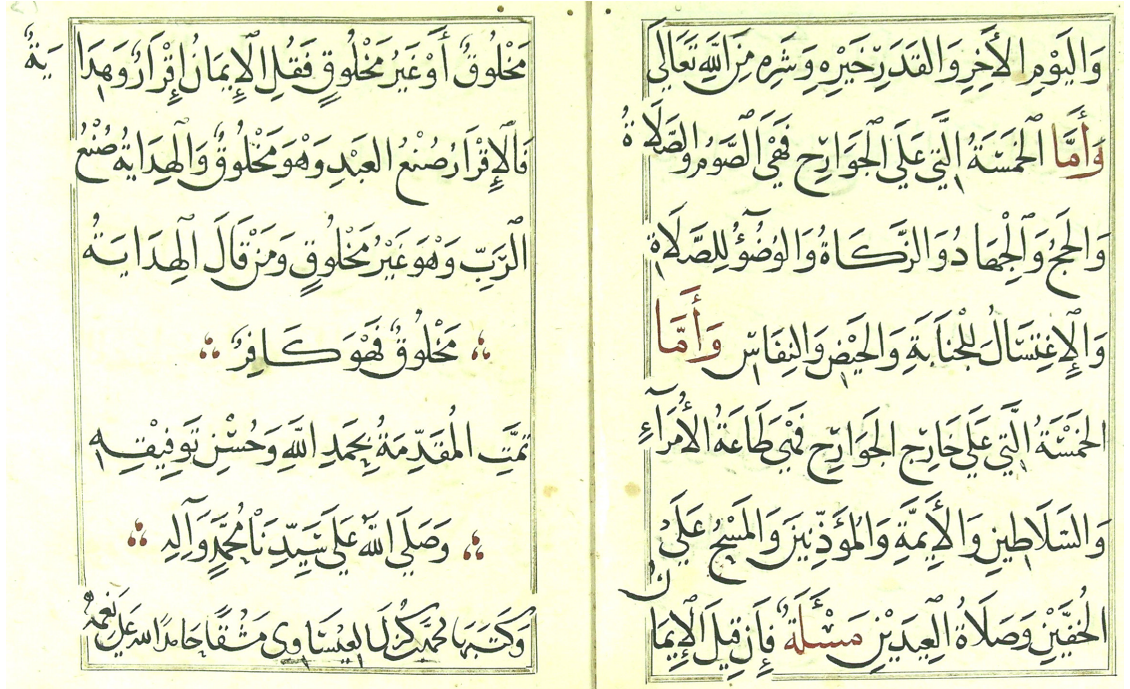 وَالْيَوْمِ الْأَخِرِ وَالْقَدَرِ خَيْرِهِ وَشَرِّهِ مِنَ اللَّهِ تَعَالَى
وَأَمَّا الْخَمْسَةُ الَّتِي عَلَى الْجَوَارِحِ فَهِيَ الصَّوْمُ وَالصَّلَاةُ
وَالْحَجُّ وَالْجِهَادُ وَالزَّكَاةُ وَالْوُضُوْءُ لِلصَّلَاةِ
وَالْإِغْتِسَالُ لِلْجَنَابَةِ وَالْحَيْضِ وَالنِّفَاسِ وَأَمَّا
الْخَمْسَةُ الَّتِي عَلَى خَارِجِ الْجَوَارِحِ فَهِيَ طَاعَةُ الْأُمَرَآءِ
وَالسَّلَاطِينِ وَالْأَئِمَّةِ وَالْمُؤَذِّنِينَ وَالْمَسْحُ عَلَى
الْخُفَّيْنِ وَصَلَاةُ الْعِيدَيْنِ مَسْئَلَةٌ فَإِن قِيلَ الْإِيمَانُ
مَخْلُوقٌ أَوْ غَيْرُ مَخْلُوقٍ فَقُلِ الْإِيمَانُ إِقْرَارٌ وَهِدَايَةٌ
فَالْإِقْرَارُ صُنْعُ الْعَبْدِ وَهُوَ مَخْلُوقٌ وَالْهِدَايَةُ صُنْعُ
الرَّبِّ وَهُوَ غَيْرُ مَخْلُوقٍ وَمَنْ قَالَ الْهِدَايَةُ
مَخْلُوقٌ فَهُوَ كَافِرٌ
تَمَّتِ الْمُقَدِّمَةُ بِحَمْدِ اللَّهِ وَحُسْنِ تَوْفِيْقِهِ
وَصَلَّى اللَّهُ عَلَى سَيِّدِنَا مُحَمَّدٍ وَآلِهِ
وَكَتَبَهَا مُحَمَّد العيساوى حَامِدًا لله عَلَى نِعَمِهِ